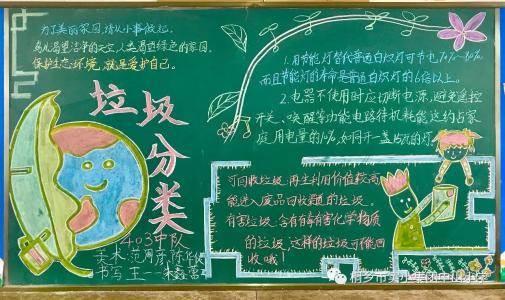 为了美丽的家园,请从小事做起。
鸟儿渴望洁净的天空,人类渴望绿色的家园。
保护生态环境,就是爱护自己。
垃圾分类
403中队
美术:
书写:王一
1.用节能灯替代普通白炽灯可节电70%~80%,
而且节能灯的寿命是普通白炽灯的6倍以上。
2.电器不使用时应切断电源,避免遥控
开关、唤醒等功能电路待机耗能这约占家
庭用电量的10%,如同开一盏
的灯。
可回收垃圾:再生利用价值较高,
能进入废品回收渠道的垃圾。
有害垃圾:含有有毒有害化学物质
的垃圾,这样的垃圾可能回
收哦!